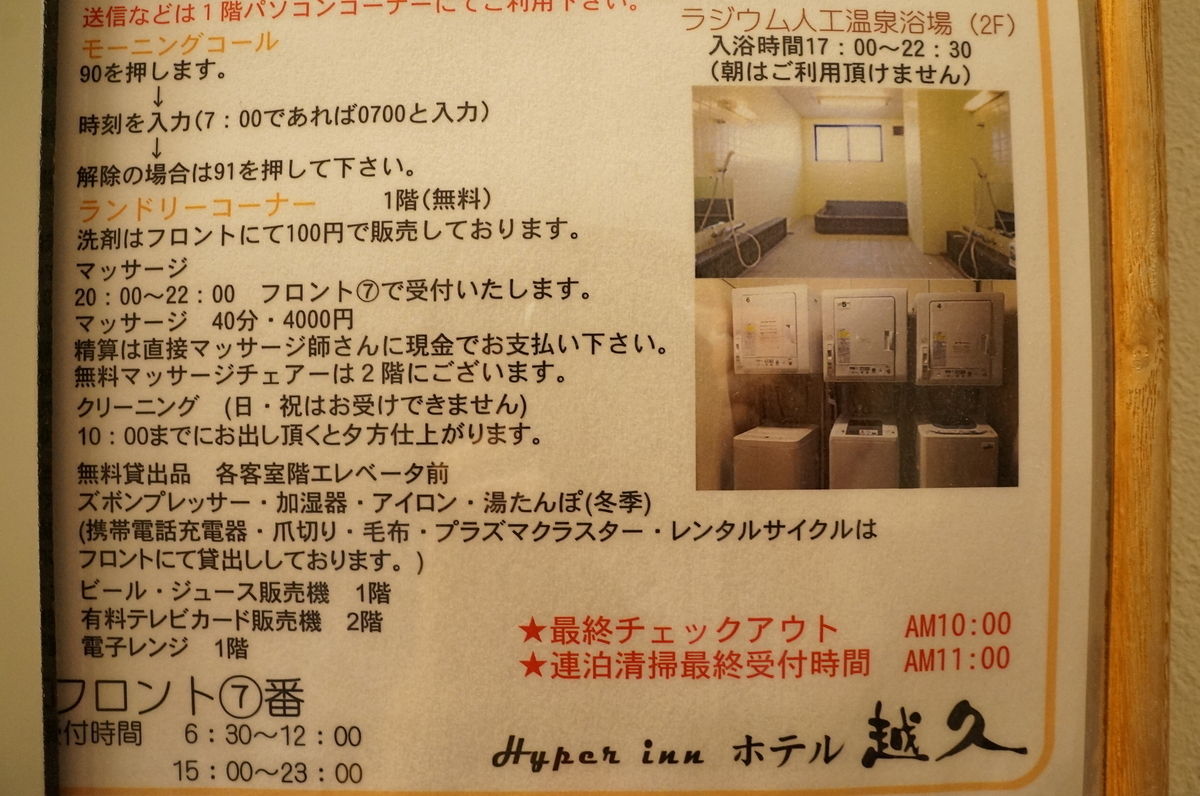 送信などは1階パソコンコーナーにてご利用下さい。
モーニングコール
90を押します。
↓
時刻を入力(7：00であれば0700と入力)
↓
解除の場合は91を押して下さい。
ランドリーコーナー　1階(無料)
洗剤はフロントにて100円で販売しております。
マッサージ
20：00～22：00　フロント⑦で受付いたします。
マッサージ　40分・4000円
精算は直接マッサージ師さんに現金でお支払い下さい。
無料マッサージチェアーは２階にございます。
クリーニング　(日・祝はお受けできません)
10：00までにお出し頂くと夕方仕上がります。
無料貸出品　各客室階エレベータ前
ズボンプレッサー・加湿器・アイロン・湯たんぽ(冬季)
(携帯電話充電器・爪切り・毛布・プラズマクラスター・レンタルサイクルは
フロントにて貸出ししております。)
ビール・ジュース販売機　1階
有料テレビカード販売機　2階
電子レンジ　1階
フロント⑦番
受付時間　6：30～12：00
15：00～23：00
ラジウム人工温泉浴場（2F）
入浴時間17：00～22：30
(朝はご利用頂けません)
★最終チェックアウト　AM10:00
★連泊清掃最終受付時間　AM11:00
Hyper inn ホテル 越久